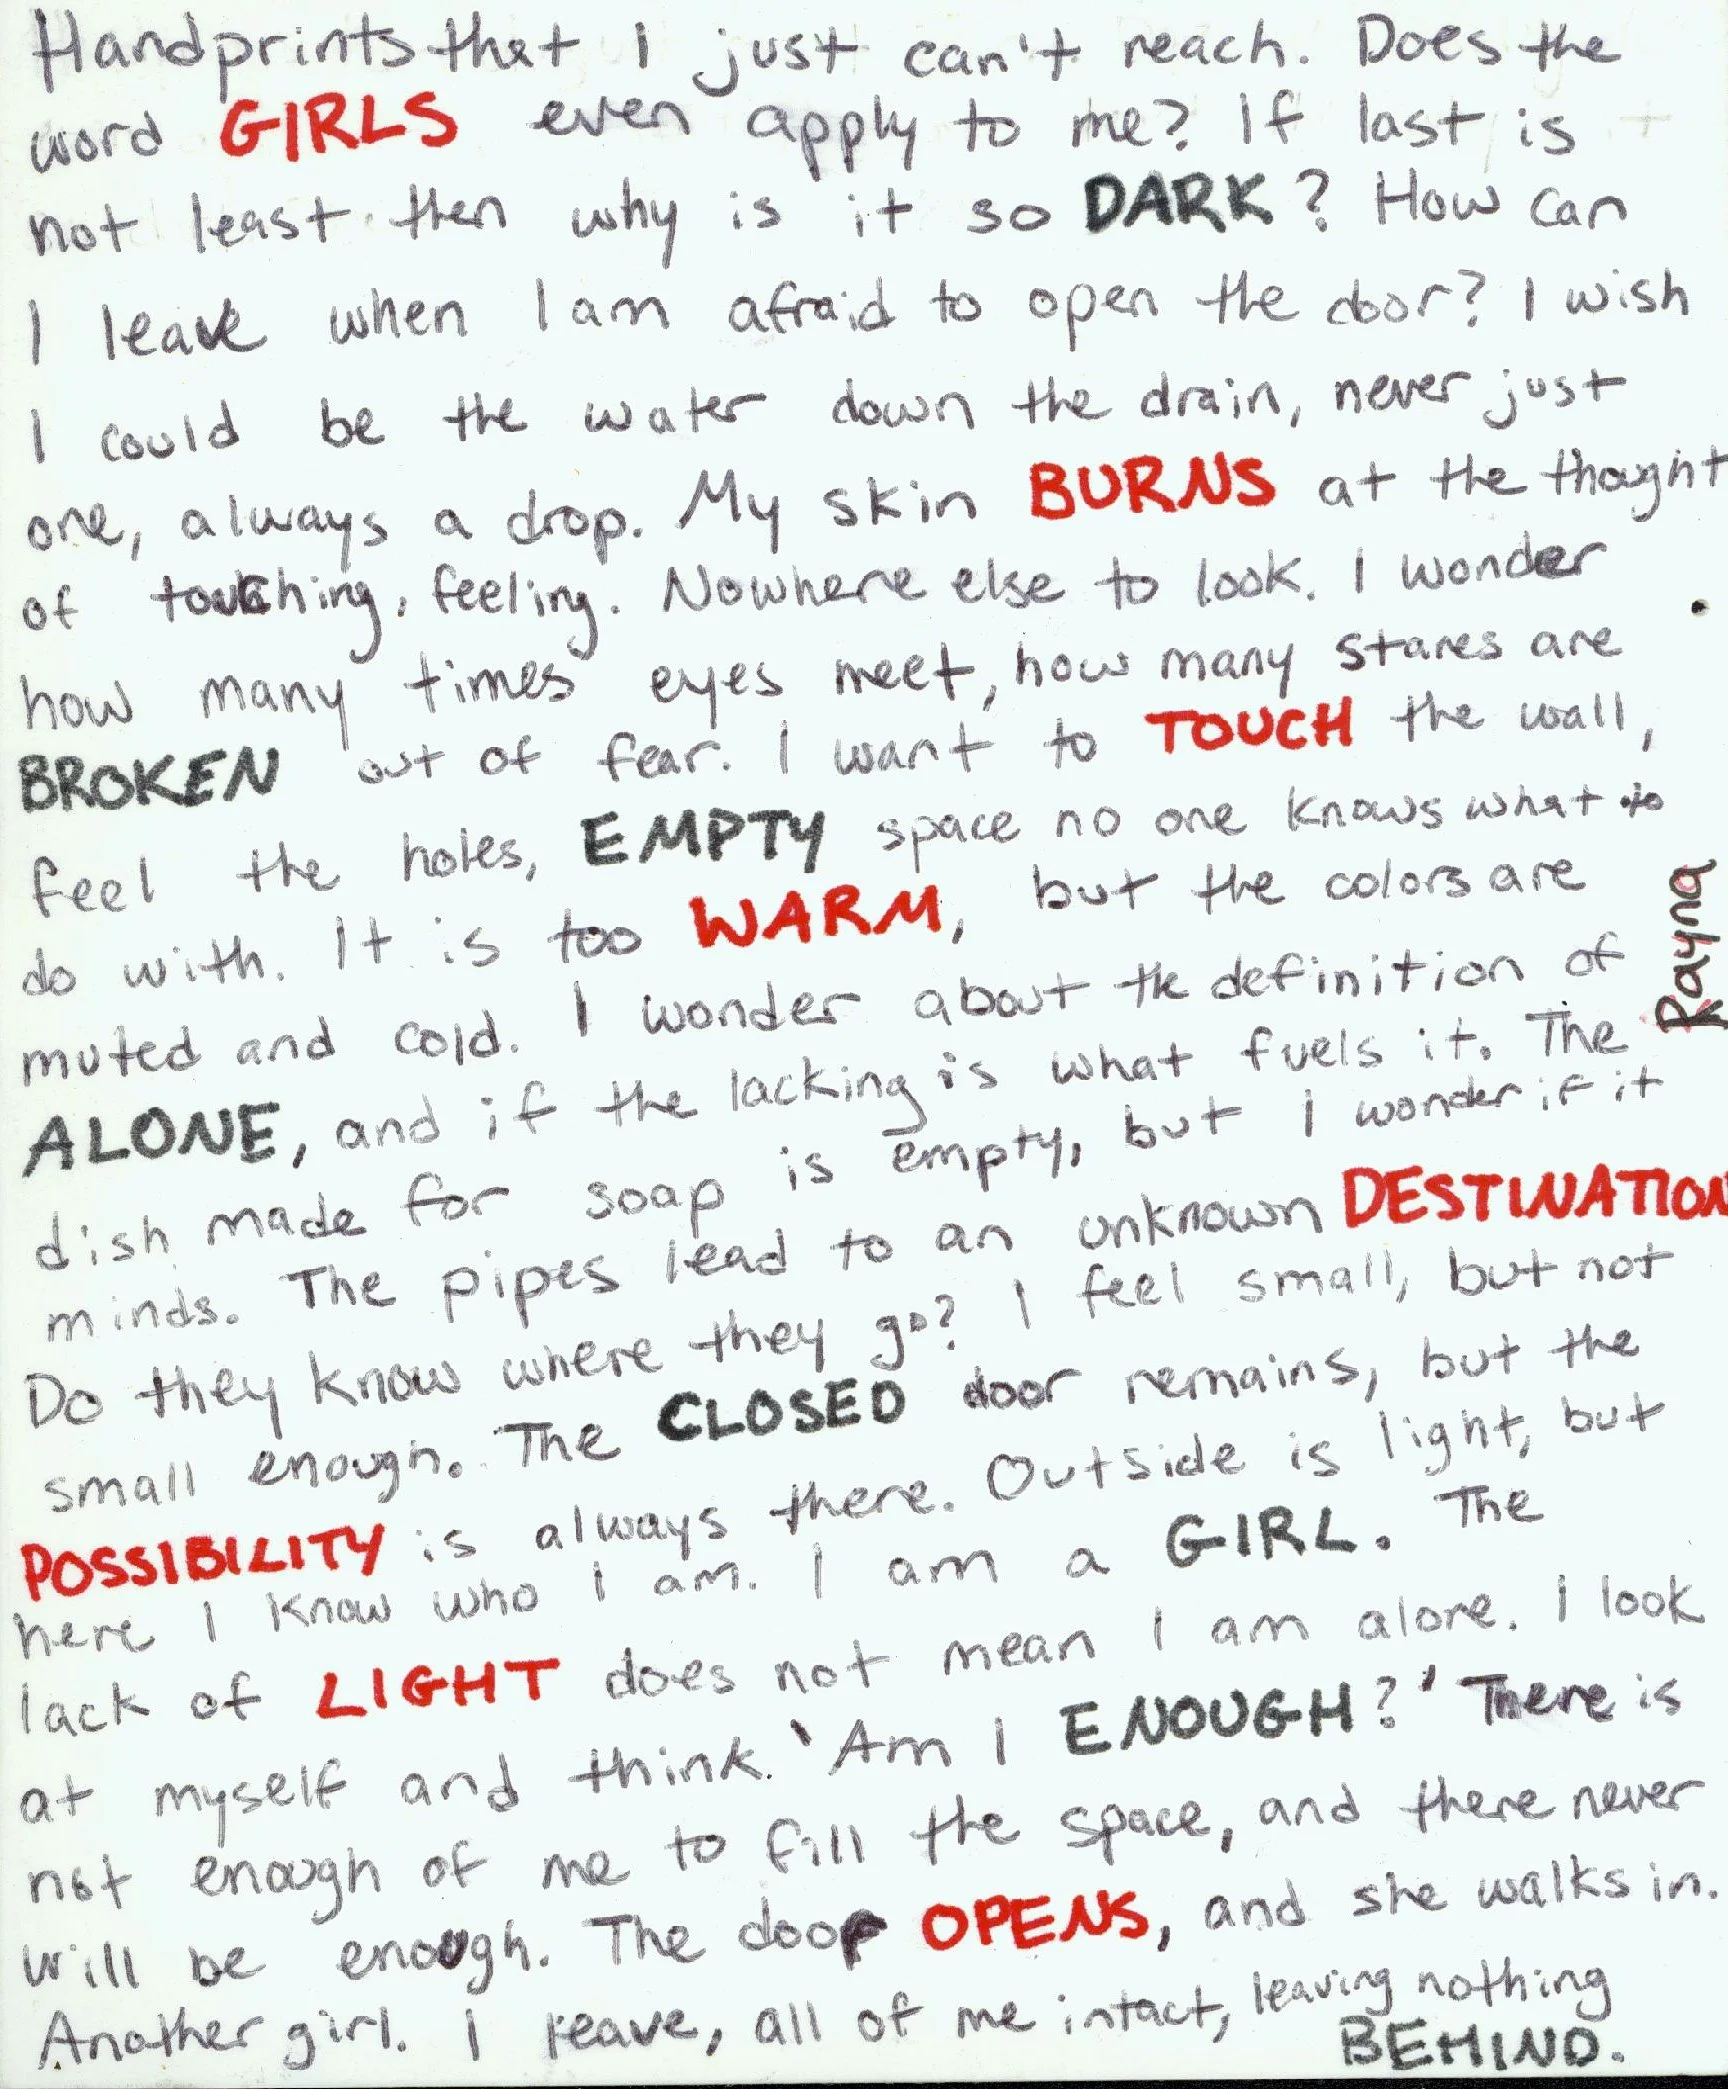 Handprints that I just can't reach. Does the
word GIRLS even apply to me? If last is
not least then why is it so DARK? How can
I leave when I am afraid to open the door? I wish
I could be the water down the drain, never just
one, always a drop. My skin BURNS at the thought
of touching, feeling. Nowhere else to look. I wonder
how many times eyes meet, how many stares are
BROKEN out of fear. I want to TOUCH the wall,
feel the holes, EMPTY space no one knows what to
do with. It is too WARM, but the colors are
muted and cold. I wonder about the definition of
ALONE, and if the lacking is what fuels it. The
dish made for soap is empty, but I wonder if it
minds. The pipes lead to an unknown DESTINATION
Do they know where they go? I feel small, but not
small enough. The CLOSED door remains, but the
POSSIBILITY is always there. Outside is light, but
here I know who I am. I am a GIRL. The
lack of LIGHT does not mean I am alone. I look
at myself and think. 'Am I ENOUGH?' There is
not enough of me to fill the space, and there never
will be enough. The door OPENS, and she walks in.
Another girl. I leave, all of me intact, leaving nothing
BEHIND.
Rayna